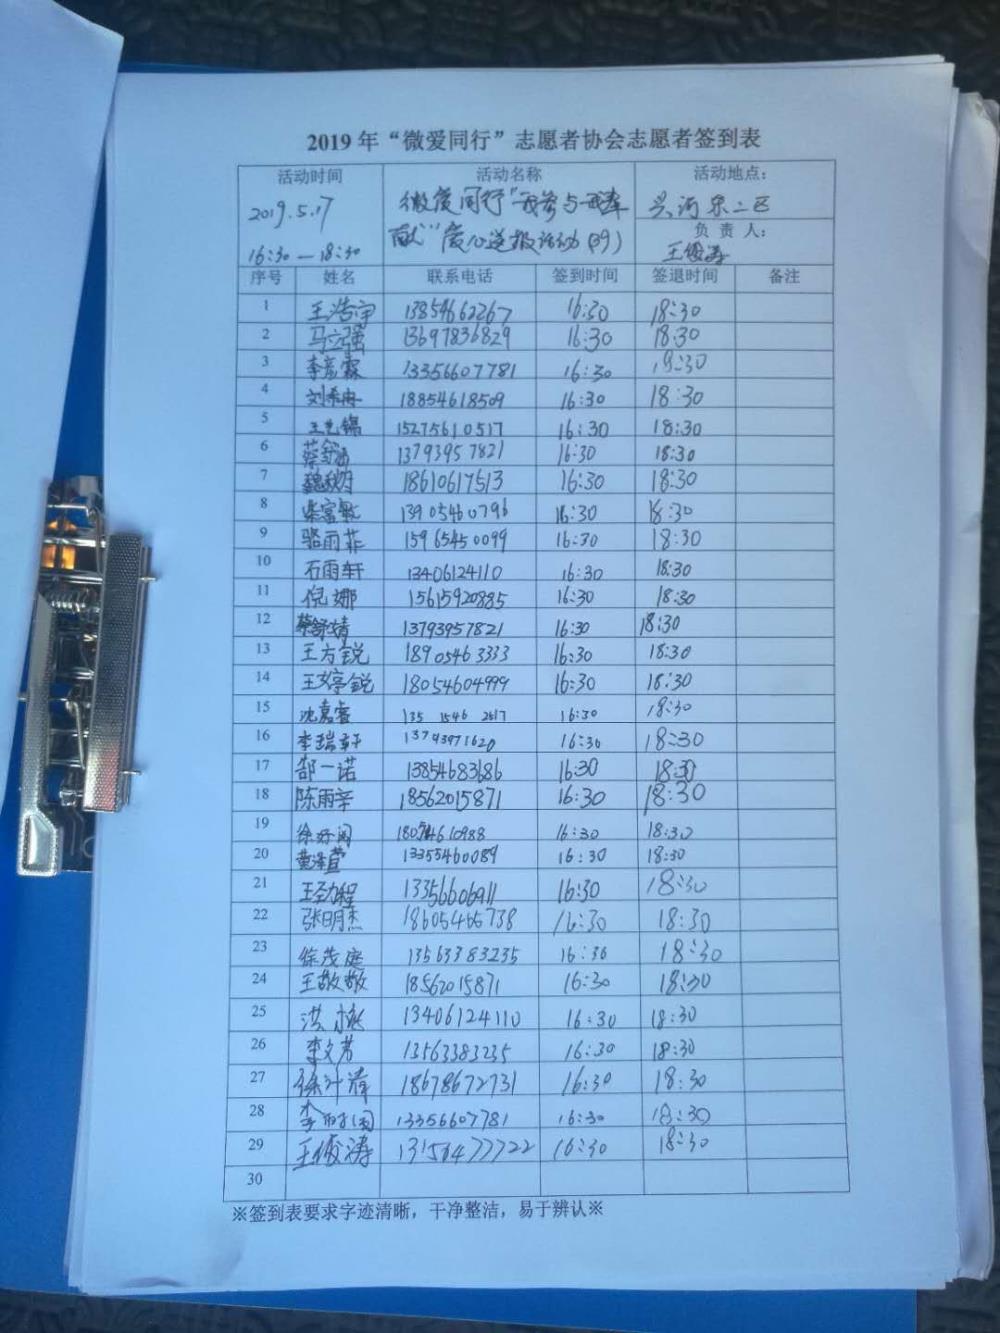 2019年“微爱同行”志愿者协会志愿者签到表
活动时间 活动名称 活动地点：
2019.5.17 微爱同行“我参与我奉 兴河东二区
16:30—18:30 献”爱心送报活动(39) 负责人：
王俊涛
序号 姓名 联系电话 签到时间 签退时间 备注
1 王浩宇 13854662267 16:30 18:30
2 马立强 13697836829 16:30 18:30
3 李彦霖 13356607781 16:30 18:30
4 刘希冉 18854618509 16:30 18:30
5 王艺锦 15275610517 16:30 18:30
6 蔡 13793957821 16:30 18:30
7 18610617513 16:30 18:30
8 13905460796 16:30 18:30
9 骆雨菲 15965450099 16:30 18:30
10 石雨轩 13406124110 16:30 18:30
11 倪娜 15615920885 16:30 18:30
12 蔡舒婧 13793957821 16:30 18:30
13 王方锐 18905463333 16:30 18:30
14 王婷锐 18054604999 16:30 18:30
15 沈嘉睿 135 1546 2617 16:30 18:30
16 李瑞轩 13793971620 16:30 18:30
17 郜一诺 13854683686 16:30 18:30
18 陈雨辛 18562015871 16:30 18:30
19 徐 16:30 18:30
20 黄泽萱 13355460089 16:30 18:30
21 王劲程 13356606911 16:30 18:30
22 张明杰 18605465738 16:30 18:30
23 徐茂庭 13563383235 16:30 18:30
24 王敬敬 18562015871 16:30 18:30
25 洪 13406124110 16:30 18:30
26 李文芳 13563383235 16:30 18:30
27 徐叶清 18678672731 16:30 18:30
28 李 13356607781 16:30 18:30
29 王俊涛 13156477722 16:30 18:30
30
※签到表要求字迹清晰，干净整洁，易于辨认※